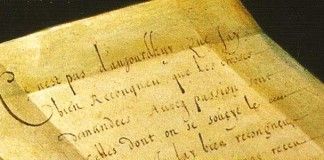 Ce n'est pas d'aujourdhuy que J'ay
bien Recongneu que Les choses
demandées Avecq passion sont
celles dont on se soucye le
J'ay bien recongneu